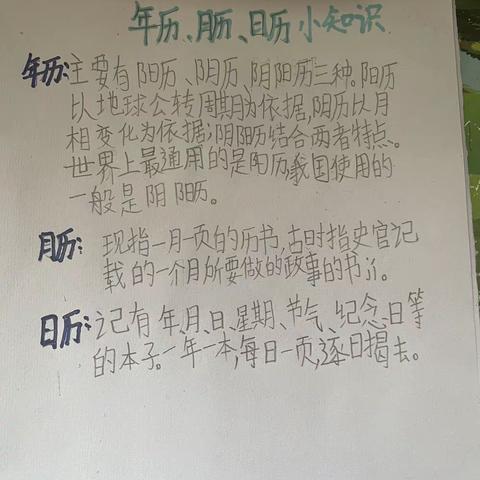 年历、月历、日历小知识
年历:主要有阳历、阴历、阴阳历三种。阳历
以地球公转周期为依据,阴历以月
相变化为依据;阴阳历结合两者特点。
世界上最通用的是阳历,我国使用的
一般是阴阳历。
月历: 现指一月一页的历书,古时指史官记
载的一个月所要做的政事的书。
日历:记有年、月、日、星期、节气、纪念日等
的本子。一年一本,每日一页,逐日揭去。